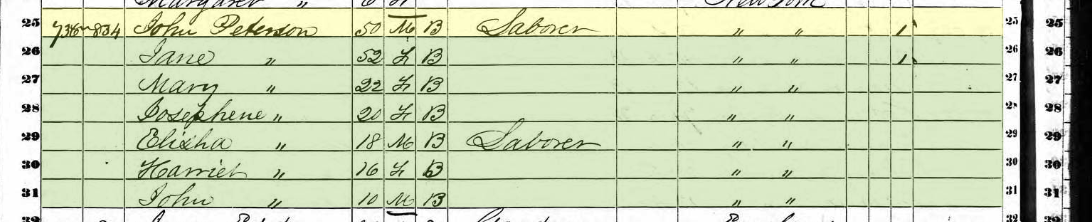 Margaret " New York
25 834 John Peterson 50 M B Laborer " " 1 25 25
26 Jane " 52 F B " " 1 26 26
27 Mary " 22 F B " " 27 27
28 Josephene " 20 F B " " 28 28
29 Elisha " 18 M B Laborer " " 29 29
30 Harriet " 16 F B " " 30 30
31 John " 10 M B " " 31 31